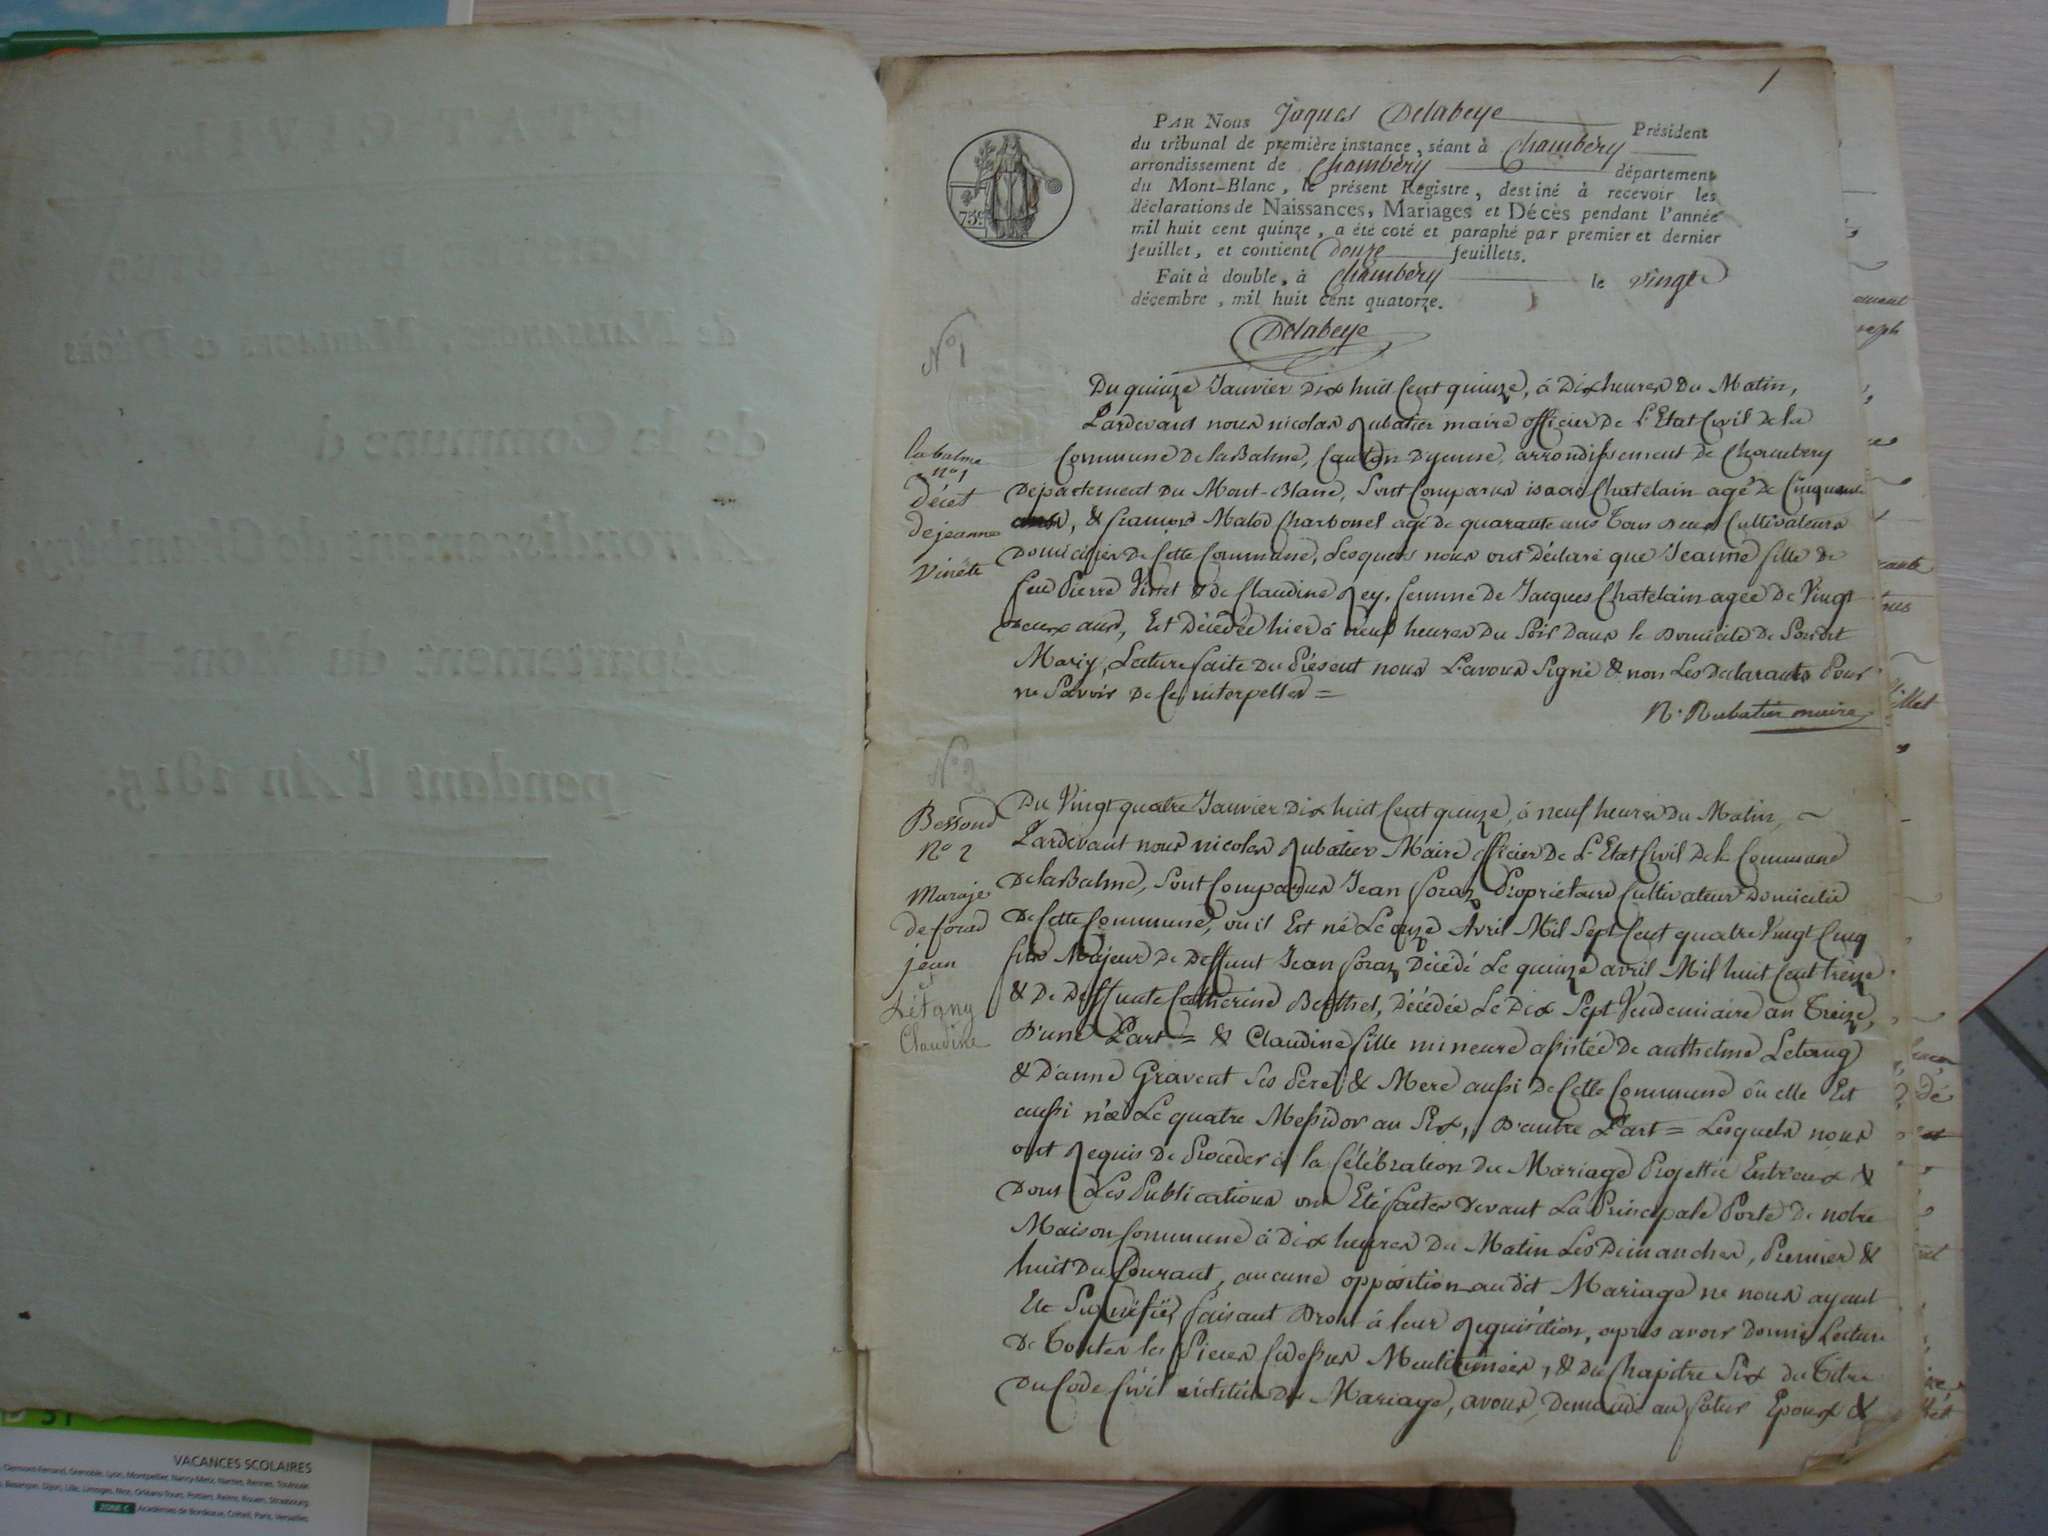 1
PAR NOUS Jaques Delabeye Président
du tribunal de première instance, séant à Chambéry
arrondissement de Chambéry département
du Mont-Blanc, le présent Registre, destiné à recevoir les
déclarations de Naissances, Mariages et Décès pendant l'année
mil huit cent quinze, a été coté et paraphé par premier et dernier
feuillet, et contient Douze feuillets.
Fait à double, à Chambéry le vingt
décembre, mil huit cent quatorze.
Delabeye
75c
N° 1
la balme
n° 1
Décet
de jeanne
Vinète
Du quinze Janvier Dix huit Cent quinze, à Dix heures Du Matin,
Pardevant nous nicolas Rubatier maire officier De L'Etat Civil de la
Commune De la Balme, Canton D'yenne, arrondissement de Chambery
Département Du Mont-Blanc, Sont Comparus isaac Chatelain agé De Cinquante
ans, & francois Malod Charbonel agé de quarante ans Tous Deux Cultivateurs
Domiciliés De Cette Commune, Lesquels nous ont Déclaré que Jeanne fille de
feu Pierre Vinet & De Claudine Rey, femme De Jacques Chatelain agée De Vingt
Deux ans, Est Décédée hier à neuf heures Du Soir Dans le Domicile De Son dit
Mary, Lecture faite Du Présent nous L'avons Signé & non Les Déclarants Pour
ne Savoir De Ce interpellés =
N. Rubatier maire
N° 2
Bessond
N° 2
Maraje
de
jean
et
Létang
Claudine
Du Vingt quatre Janvier Dix huit Cent quinze, à neuf heures Du Matin,
Pardevant nous nicolas Rubatier Maire officier De L'Etat Civil De la Commune
De la Balme, Sont Comparus Jean Propriétaire Cultivateur Domicilié
De Cette Commune, ou il Est né Le onze Avril Mil Sept Cent quatre Vingt Cinq
fils Majeur De Deffunt Jean Décédé Le quinze avril Mil huit Cent treize
& De Deffunte Catherine Berthet, Décédée Le Dix Sept Vendemiaire an Treize,
D'une Part = & Claudine fille mineure assistée De anthelme Letang
& D'anne Gravent Ses Pere & Mere aussi De Cette Commune où elle Est
aussi née Le quatre Messidor an Six, D'autre Part = Lesquels nous
ont Requis De Proceder à la Célébration Du Mariage Projetté Entr'eux &
Dont Les Publications ont Eté faites Devant La Principale Porte De notre
Maison Commune à Dix heures Du Matin Les Dimanches, Premier &
huit Du Courant, aucune opposition au dit Mariage ne nous ayant
Eté Signifiée faisant Droit à leur Requisition, après avoir Donné Lecture
De Toutes les Pieces Cidessus Mentionnées, & Du Chapitre Six du Titre
Du Code Civil intitulé Du Mariage, avons Demandé au futur Epoux &
de NAISSANCES, MARIAGES et DÉCÈS
de la Commune d
pendant l'An 1815.
VACANCES SCOLAIRES
Clermont-Ferrand, Grenoble, Lyon, Montpellier, Nancy-Metz, Nantes, Rennes, Toulouse
Besançon, Dijon, Lille, Limoges, Nice, Orléans-Tours, Poitiers, Reims, Rouen, Strasbourg
ZONE C Académies de Bordeaux, Créteil, Paris, Versailles